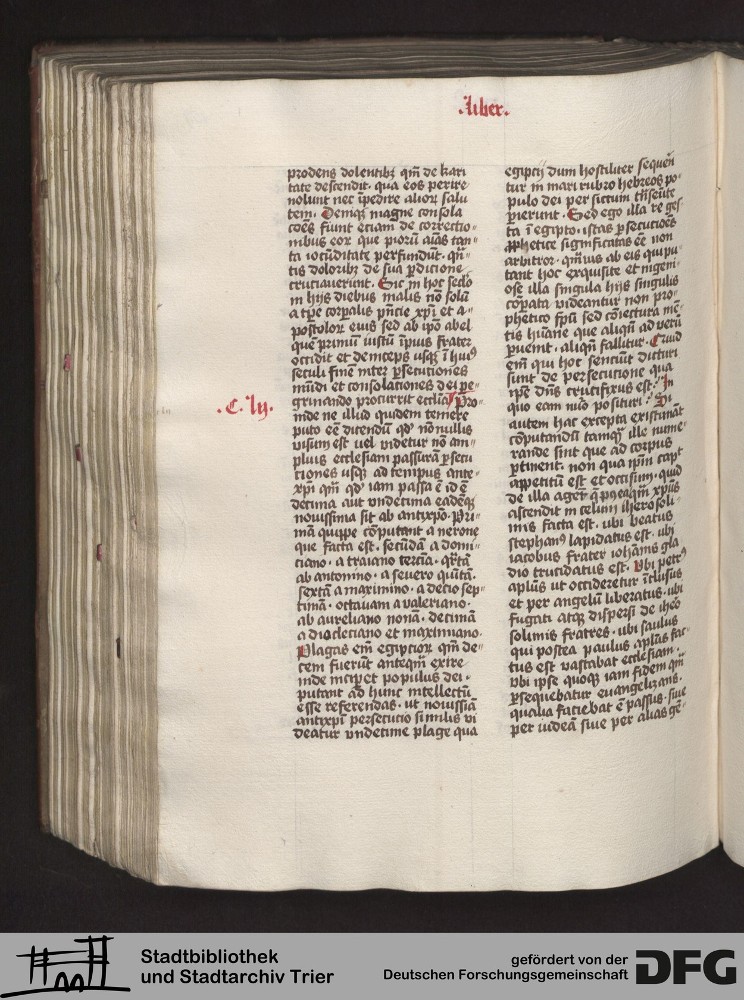 .Liber.
prodens dolentibꝫ qm̄ de kari
tate descendit · qua eos perire
nolunt nec īpedire alioꝝ salu
tem. Deniqꝫ magne consola
cōēs fiunt eciam de correctio-
nibus eoꝝ que pioꝝ aīas tan-
ta iocūditate perfundūt · qn̄-
tis doloribꝫ de sua ꝑdicione
cruciauerunt. Sic in hoc sedo
in hijs diebus malis nō solū
a tꝑe corꝑalis pn̄cie xp̄i et a-
postoloꝝ eius sed ab ip̄o abel
que primū iustū īpius frater
occidit et deinceps usqꝫ ī huiꝰ
seculi finē inter ꝑsecutiones
mūdi et consolationes dei pe-
grinando procurrit ecclīa Pro-
.C. lij.
inde ne illud quidem temere
puto eē dicendū qd̓ nōnullis
uisum est uel videtur nō am-
plius ecclesiam passurā ꝑsecu
tiones usqꝫ ad tempus ante-
xp̄i qm̄ qd̓ iam passa ē id ē
decima aut vndecima eadēqꝫ
nouissima sit ab antixp̄o. Pri-
mā quippe cōputant a nerone
que facta est · secūdā a domi-
ciano · a traiano terciā · qͣrtā
ab antonino · a seuero quītā
sextā a maximino · a decio sep-
timā · octauam a valeriano ·
ab aureliano nonā · decimā
a diocleciano et maximiano
Plagas em̄ egiptioꝝ qm̄ de-
cem fuerūt anteqm̄ exire
inde incipet populus dei ·
putant ad hunc intellectū
esse referendas · ut nouissiā
antixp̄i persecutio similis vi
deatur vndecime plage qua
egiptij dum hostiliter sequen̄
tur in mari rubro hebreos po-
pulo dei per siccum trāseūte
perierunt. Sed ego illa re ges
ta ī egipto · istas ꝑsecutiōes
prophetice significatas eē non
arbitror · qm̄uis ab eis qui pu-
tant hoc exquisite et ingeni-
ose illa singula hijs singulis
cōpata videantur non pro-
phetico sp̄u sed cōiectura mē-
tis huāne que aliqn̄ ad verū
puenit · aliqn̄ fallitur. Quid
em̄ qui hoc senciūt dicturi
sunt de persecutione qua
ipe dn̄s crucifixus est: In
quo eam nūo posituri: Si
autem hac excepta existimāt
cōputandū tamqͣ ille nume-
rande sint que ad corpus
ꝑtinent · non qua ip̄m capt
appetitū est et occisum · quid
de illa agēt q̄ postea qm̄ xp̄us
ascendit in celum iherosoli-
mis facta est · ubi beatus
stephanꝰ lapidatus est · ubi
iacobus frater iohānis gla
dio trucidatus est. Vbi petrꝰ
apl̄us ut occideretur īclusus
et per angelū liberatus · ubi
fugati atqꝫ dispersi de ihero
solimis fratres · ubi saulus
qui postea paulus apl̄us fac-
tus est vastabat ecclesiam ·
vbi ipse quoqꝫ iam fidem qm̄
ꝑsequebatur euangelizans ·
qualia faciebat ē passus · siue
per iudeā siue per alias gē-
Stadtbibliothek
und Stadtarchiv Trier
gefördert von der
Deutschen Forschungsgemeinschaft
DFG